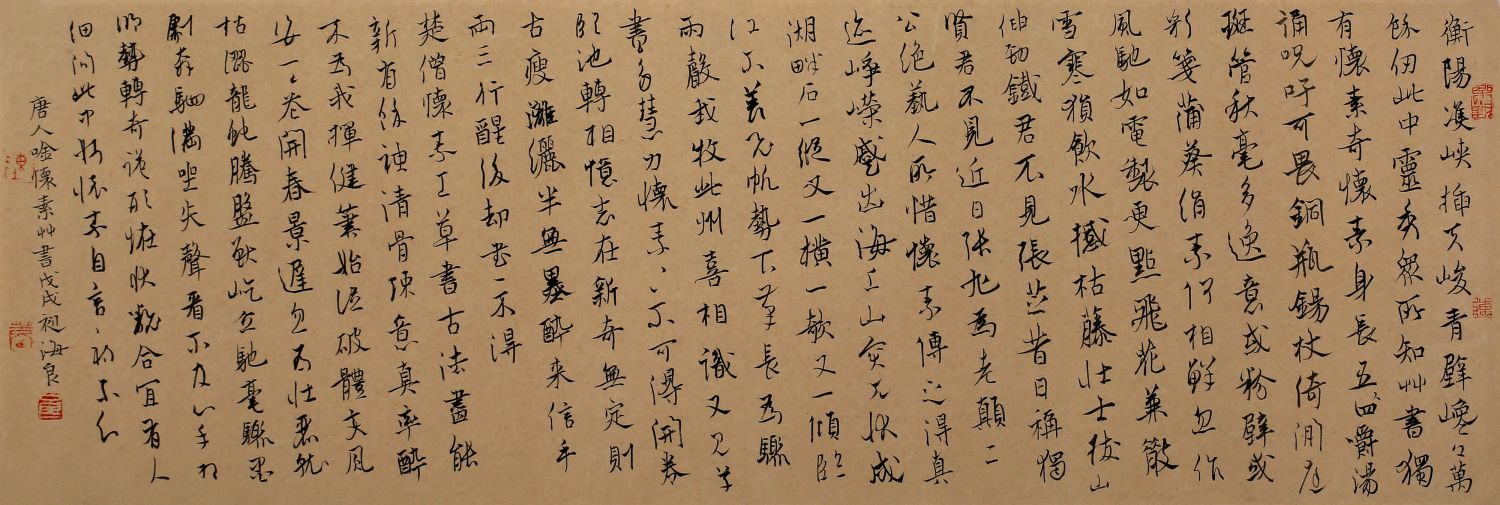 衡陽雙峽插天峻青壁巉〻萬
餘仞此中靈秀眾所知艸書獨
有懷素奇懷素身長五四嚼湯
誦咒吁可畏銅瓶錫杖倚閒庭
斑管秋毫多逸意或粉壁或
彩箋蒲葵絹素何相鮮忽作
風馳如電掣更點飛花兼散
雪寒猿飲水撼枯藤壯士拔山
伸勁鐵君不見張芝昔日稱獨
賢君不見近日張旭為老顛二
公絕藝人所惜懷素傳之得真
迹崢嶸蹙出海上山突兀狀成
湖畔石一縱又一橫一欹又一傾臨
江不羨飛帆勢下筆長為驟
雨聲我牧此州喜相識又見草
書多慧力懷素〻不可得開券
臨池轉相憶志在新奇無定則
古瘦灕纚半無墨醉来信手
兩三行醒後却書〻不得
楚僧懷素工草書古法盡能
新有餘神清骨竦意真率醉
来為我揮健筆始從破體變風
姿一〻花開春景遲忽為壯麗就
枯澀龍蛇騰盤獸屹立馳毫驟墨
劇奔駟滿坐失聲看不及心手相
師勢轉奇詭形怪狀翻合宜有人
細問此中妙懷素自言初不知
唐人咏懷素艸書戊戌祖海良